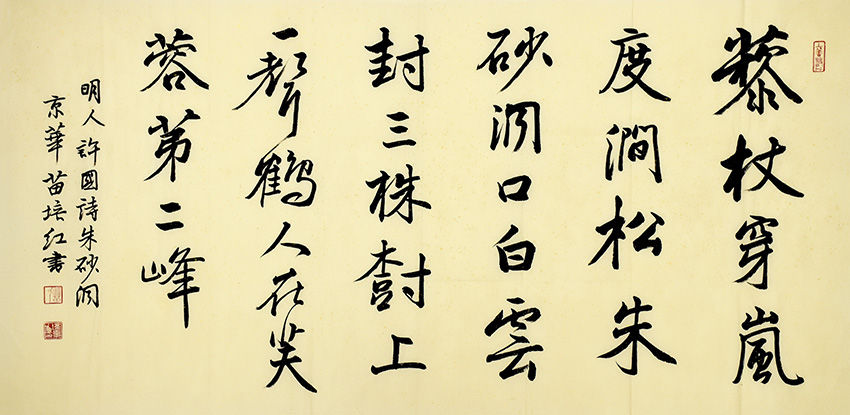 藜杖穿嵐
度澗松朱
砂洞口白雲
封三株樹上
一聲鶴人在芙
蓉第二峰
明人許國詩朱砂洞
京華苗培红書